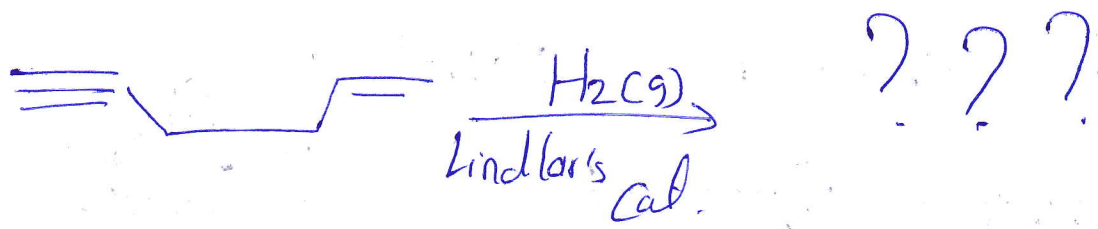 H2(g) ? ? ?
Lindlar's
Cat.